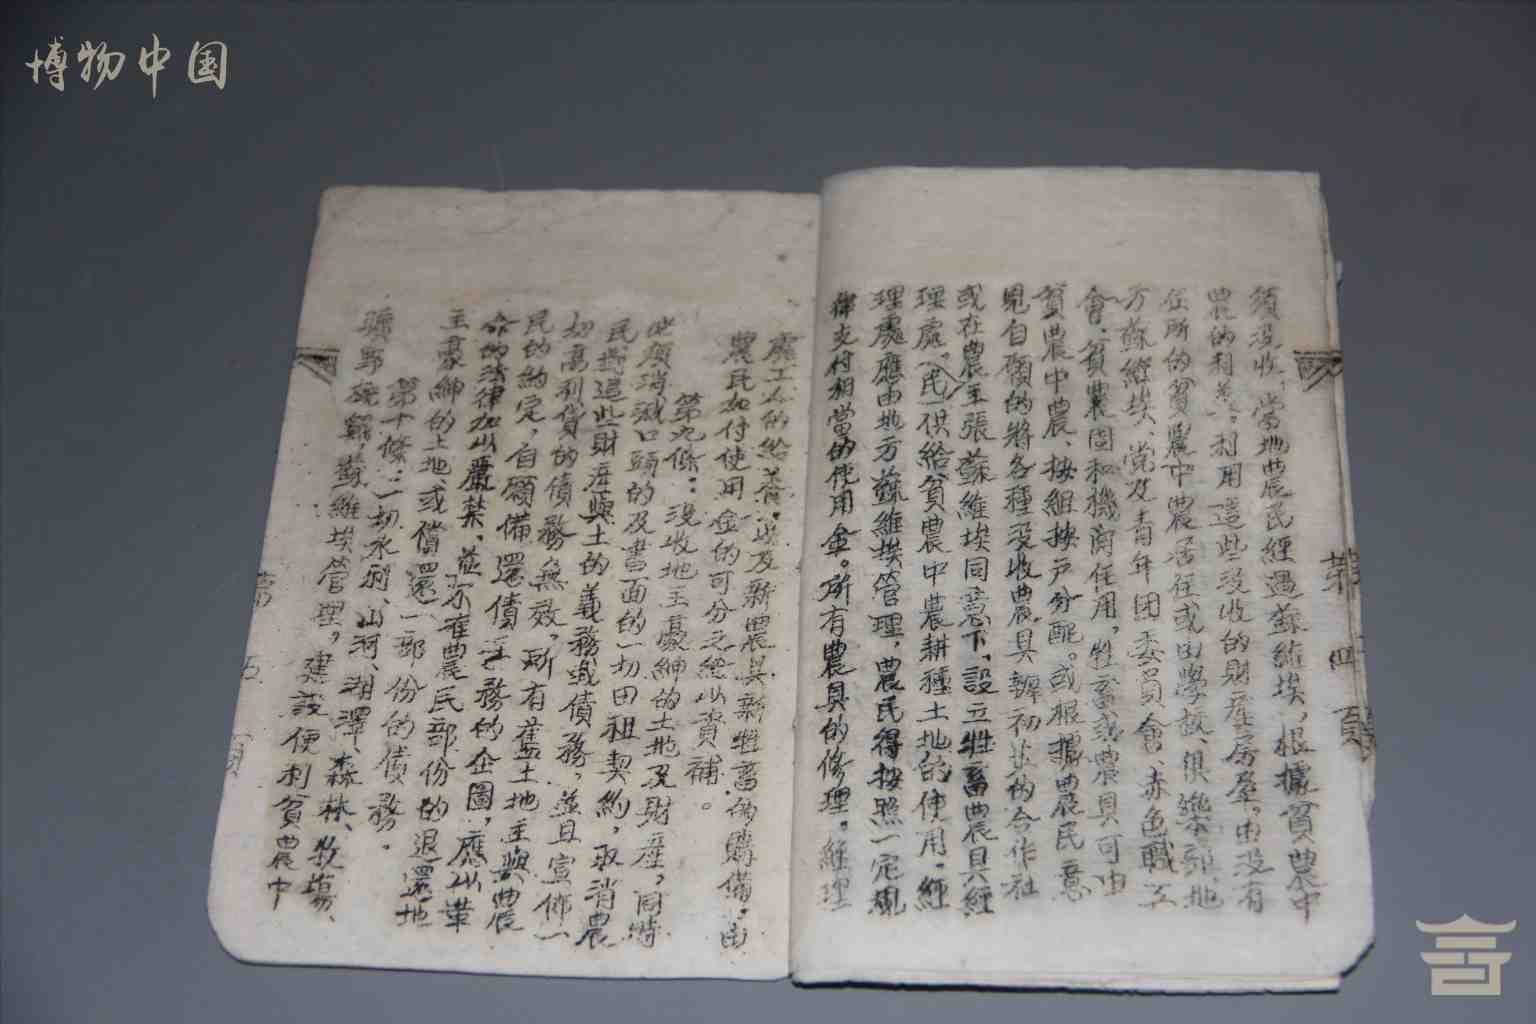 博物中国
須没收，當地農民經過蘇維埃，根據貧農中
農的利益。利用這些没收的財産房屋。由没有
住所的貧農中農居住或由學校、俱樂部、地
方蘇維埃、党及青年团委員會、赤色職工
會、貧農团和機関任用，牲畜或農具可由
貧農中農、按組按戸分配。或根據農民意
見自願的將各種没收農具辦初步的合作社
或在農主張蘇維埃同意下，設立牲畜農具經
理處、(民)供給貧農中農耕種土地的使用。經
理處應由地方蘇維埃管理，農民得按照一定規
律支付相當的使用金。所有農具的修理。經理
第四頁
處工人的給养。以及新農具新牲畜的購備。由
農民加付使用金的可分之 以資補。
第九條：没收地主豪紳的土地及財産，同時
必須消滅口頭的及書面的一切田租契約，取消農
民對這些財産與土的義務或債務，並且宣佈一
切高利貸的債務無效，所有舊土地主與農
民的約定，自願償還債務的企圖，應以革
命的法律加以嚴禁，並不准農民部份的退還地
主豪紳的土地或償還一部份的債務。
第十條：一切水利、山河、湖澤、森林、牧場、
蘇維埃管理，建設便利貧農中
第五頁